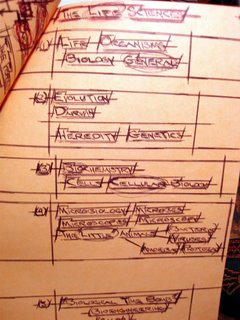 The Life Sciences
(1) Life Organisms
Biology General
(2) Evolution
Darwin
Heredity Genetics
(3) Biochemistry
Cells Cellular Biology
(4) Microbiology Microbes
Microscopes Microscopy
The Little Animals Bacteria
Viruses
Protozoa
(5) Biological The Bomb
Bioengineering